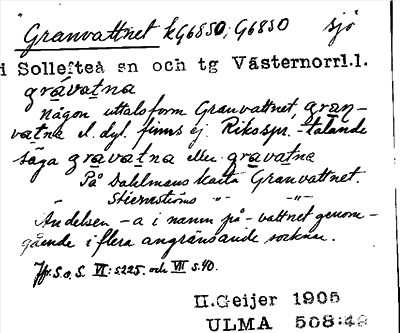 Granvattnet kG6850; G6850 sjö
i Sollefteå sn och tg Västernorrl.l.
gràvatna
någon uttalsform Granvattnet, gran-
vatna el. dyl. finns ej. Rikospr.-talande
säga gràvatna eller gravatna
På Dahlmans karta Granvattnet.
" Stiernströms -"- -"-
Ändelsen -a i namn på -vattnet genom-
gående i flera angränsande socknar.
Jfr S.o.S. VI: s225. och VII s.40.
H.Geijer 1905
ULMA 508:49